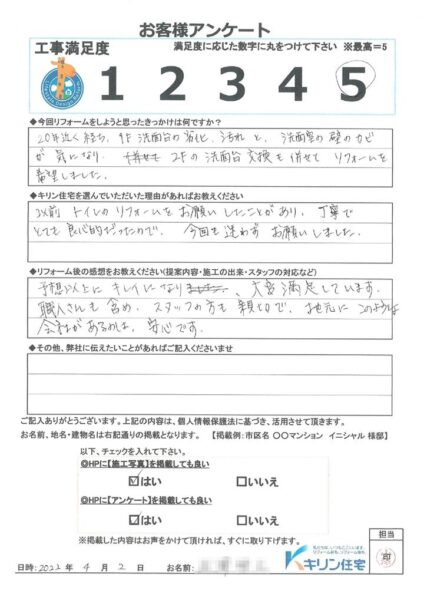 お客様アンケート
工事満足度 満足度に応じた数字に丸をつけて下さい ※最高=5
1 2 3 4 5
◆今回リフォームをしようと思ったきっかけは何ですか?
20年近く経ち、1F洗面台の劣化、汚れと、洗面室の壁のカビ
が気になり、併せて2Fの洗面台交換も併せてリフォームを
希望しました。
◆キリン住宅を選んでいただいた理由があればお教えください
以前トイレのリフォームをお願いしたことがあり、丁寧で
とても良心的だったので、今回も迷わずお願いしました。
◆リフォーム後の感想をお教えください(提案内容・施工の出来・スタッフの対応など)
予想以上にキレイになり、大変満足しています。
職人さんも含め、スタッフの方も親切で、地元にこのような
会社があるのは、安心です。
◆その他、弊社に伝えたいことがあればご記入くださいませ
ご記入ありがとうございます。上記の内容は、個人情報保護法に基づき、活用させて頂きます。
お名前、地名・建物名は右記通りの掲載となります。 【掲載例:市区名 〇〇マンション イニシャル 様邸】
以下、チェックを入れて下さい。
◎HPに【施工写真】を掲載しても良い
☑はい □いいえ
◎HPに【アンケート】を掲載しても良い
☑はい □いいえ
※掲載した内容はお声をかけて頂ければ、すぐに取り下げます。
担当
印
キリン住宅
日時:2022年4月2日 お名前: